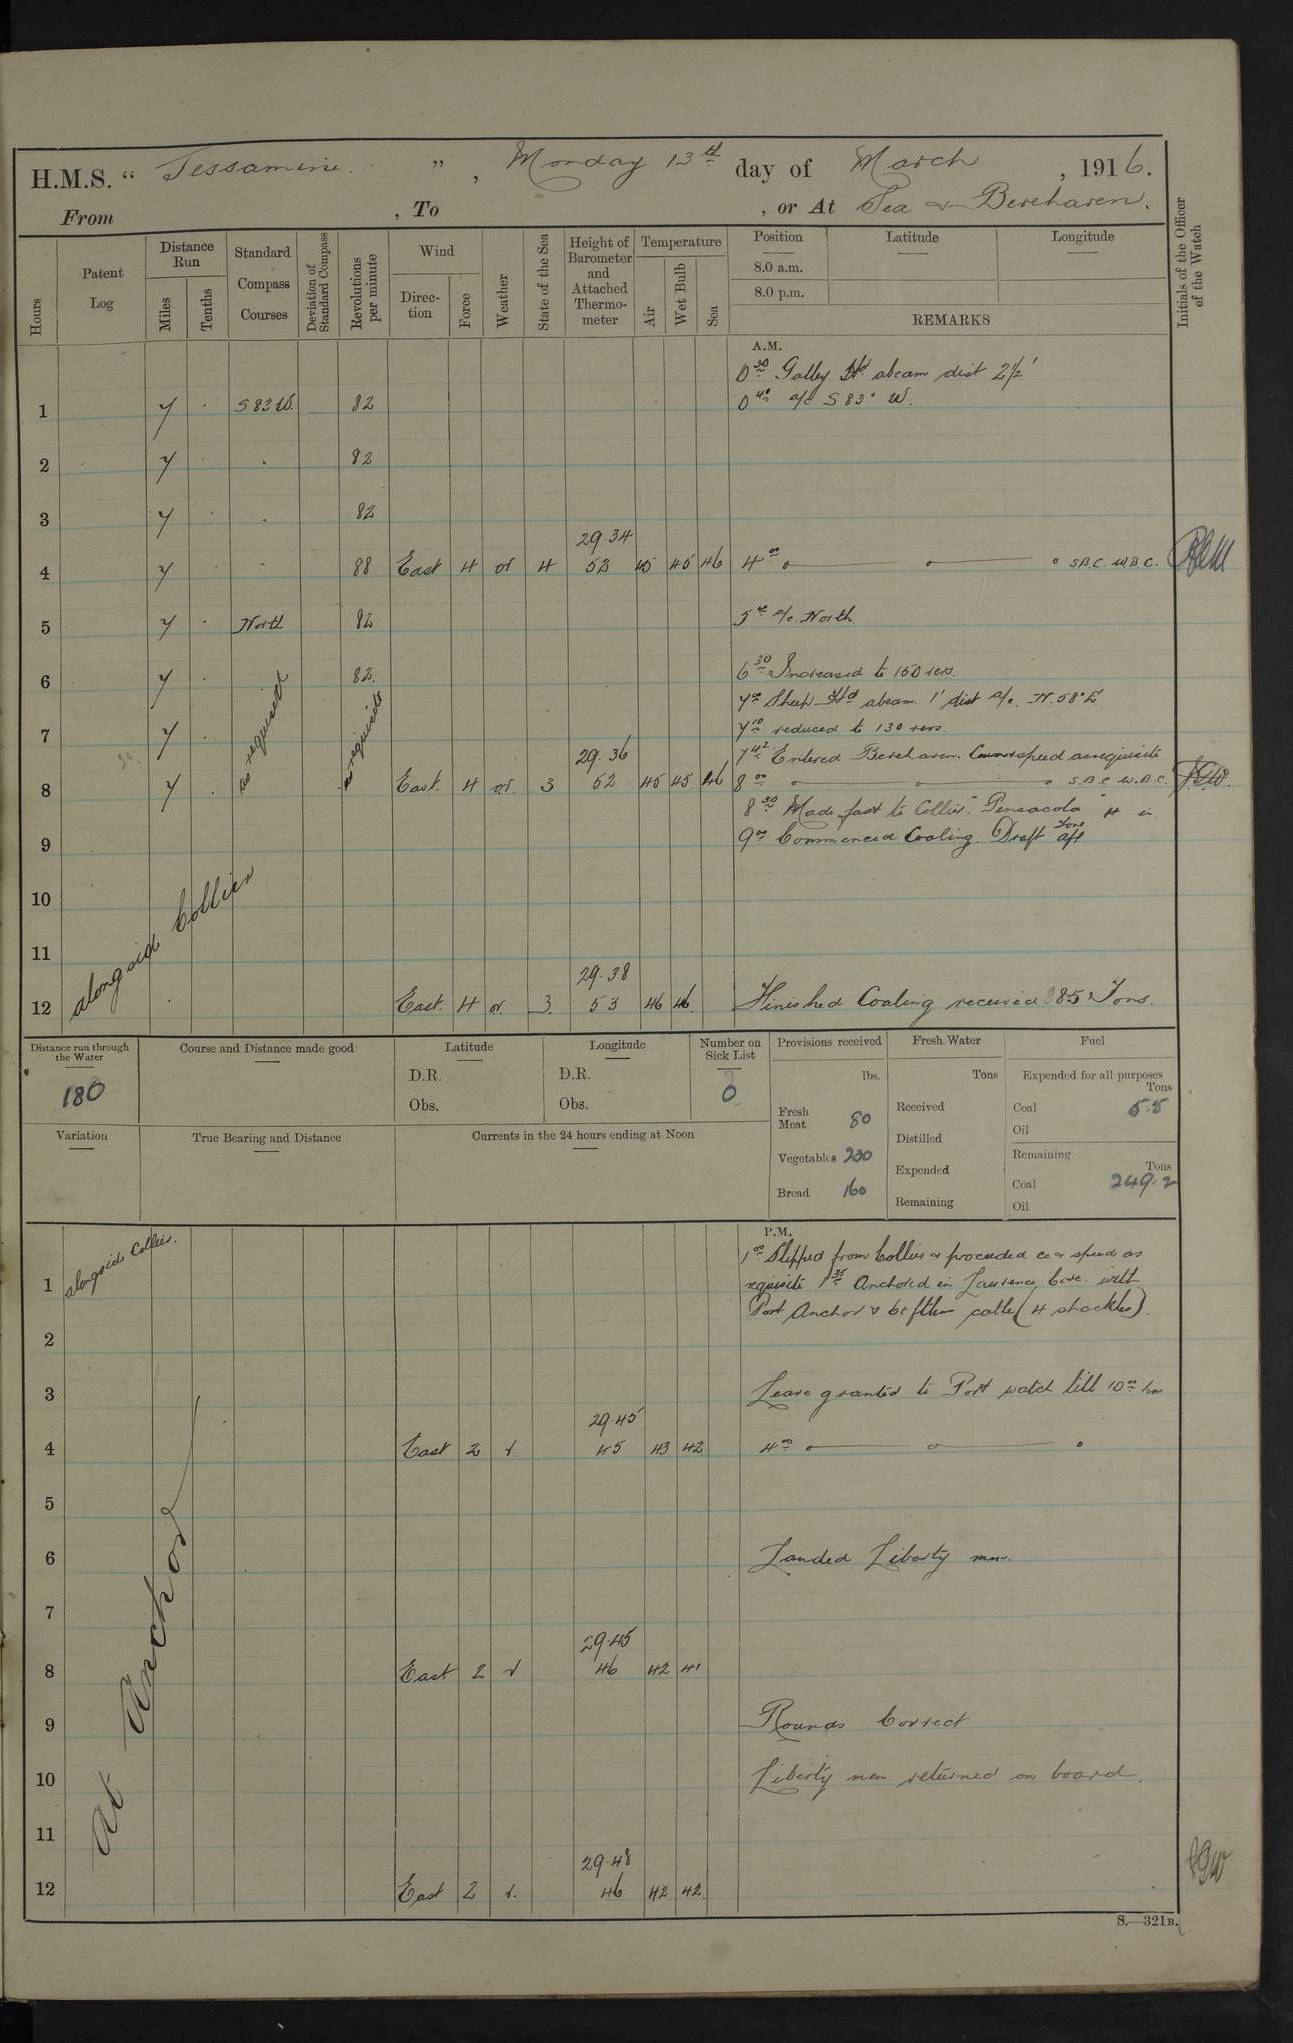 H.M.S. “ Jessamine. ” , Monday 13th day of March , 1916.
From , To , or At Sea & Berehaven.
Hours
Patent Log
Distance Run
Miles
Tenths
Standard Compass Courses
Deviation of Standard Compass
Revolutions per minute
Wind
Direction
Force
Weather
State of the Sea
Height of Barometer and Attached Thermometer
Temperature
Air
Wet Bulb
Sea
Position
8.0 a.m.
8.0 p.m.
Latitude
Longitude
REMARKS
Initials of the Officer of the Watch
A.M.
0 30 Galley Hd abeam dist 2½'
1 7 · S 83 W. 82 0 40 a/c S 83° W.
2 7 · · 82
3 7 · · 82
29.34
4 7 · · 88 East 4 or 4 53 45 45 46 4 00 S.B.C. W.B.C.
5 7 · North 82 5 00 a/c. North.
6 7 · 82. 6 30 Increased to 150 revs.
as requisite
as requisite
7 00 Sheep Hd abeam 1' dist a/c. N. 58° E
7 7 · 7 10 reduced to 130 revs.
29.36 7 42 Entered Berehaven. Co speed as requisite
8 7 · East. 4 or. 3 52 45 45 46 8 00 S.B.C. W.B.C. JGW.
8 30 Made fast to Collier "Pensacola"
9 9 00 Commenced Coaling. Draft fore aft
10
11
alongside Collier
29.38
12 East. 4 or. 3. 53 46 46. Finished Coaling received 85 Tons.
Distance run through the Water
180
Course and Distance made good
Latitude
D.R.
Obs.
Longitude
D.R.
Obs.
Number on Sick List
0
Provisions received
lbs.
Fresh Meat 80
Vegetables 230
Bread 160
Fresh Water
Tons
Received
Distilled
Expended
Remaining
Fuel
Expended for all purposes
Tons
Coal 5.5
Oil
Remaining
Tons
Coal 249.2
Oil
Variation
True Bearing and Distance
Currents in the 24 hours ending at Noon
P.M.
alongside Collier.
1 00 Slipped from Collier & proceeded co & speed as
1 requisite 1 35 Anchored in Lawrence Cove. with
Port Anchor & cable (4 shackles).
2
3 Leave granted to Port watch till 10 00
29.45
4 East 2 r. 45 43 42. 4 00
5
6 Landed Liberty men.
7
29.45
8 East 2 r 46 42 41
9 Rounds Correct
10 Liberty men returned on board.
11
At Anchor
29.48
12 East 2 r. 46 42 42. JGW
S.—321B.